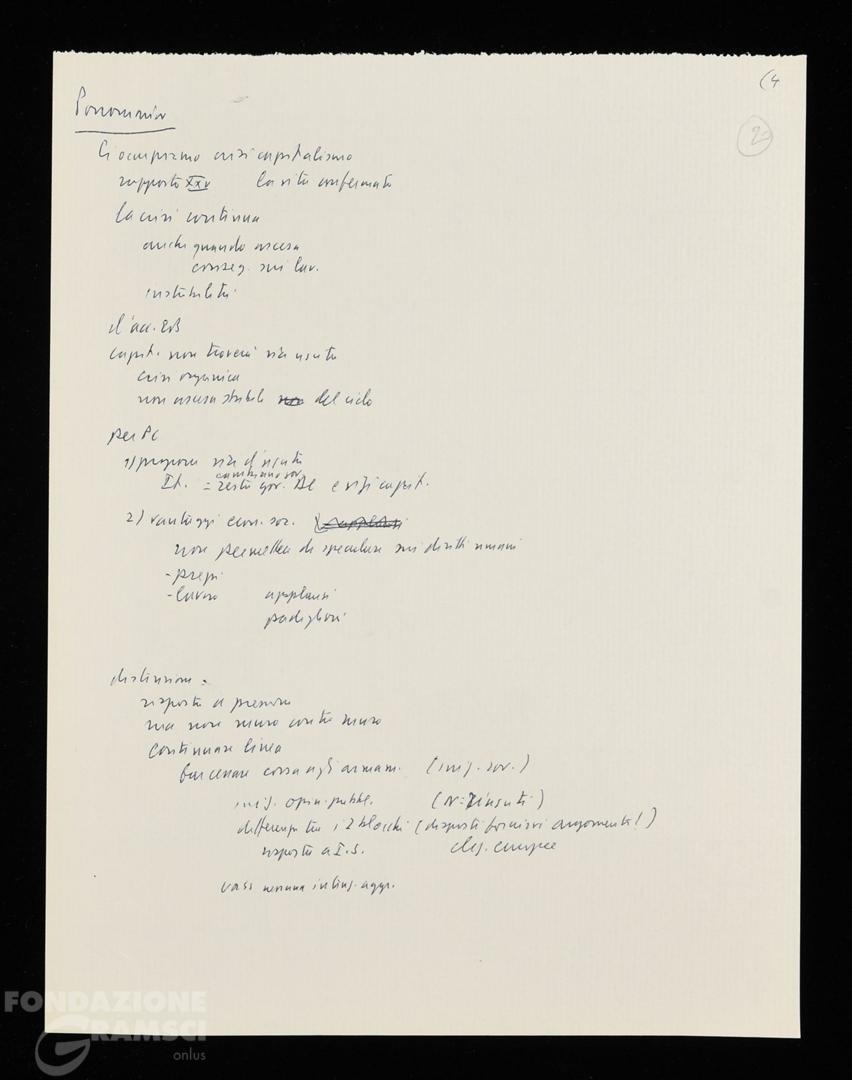 (4
2
Ponomariov
Ci occupiamo crisi capitalismo
rapporto XXV la vita confermato
la crisi continua
anche quando ascesa
conseg. sui lav.
instabilità
d'acc. EB
capit. non troverà via uscita
crisi organica
non ascesa stabile del ciclo
per PC
1) proporre via d'uscita
cambiano gov.
It. = resta gov. DC e crisi capit.
2) vantaggi econ. soc.
non permettere di speculare sui diritti umani
- prezzi
- lavoro applausi
padiglioni
distensione =
risposta a pressione
ma non muro contro muro
continuare linea
far cessare corsa agli armam. (iniz. sov.)
iniz. opin. pubbl. (N = )
differenza tra i 2 blocchi (disposti fornirvi argomenti!)
risposta a I.S. europee
nessuna aggr.
FONDAZIONE
GRAMSCI
onlus